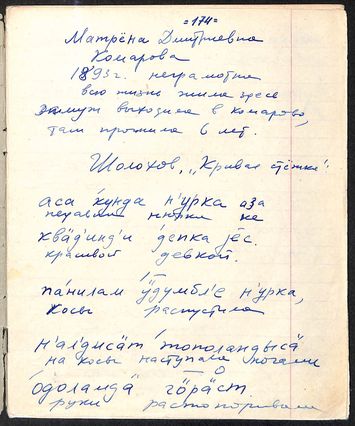 =174=
Матрёна Дмитриевна
Комарова
1893г. неграмотна
всю жизнь жила здесь
замуж выходила в Комарово,
там прожила 6 лет.
Шолохов, „Кривая стёжка“:
аса х́унда н'у́рка аза
нюрка не
квӓд'инд'и д́епка jес.
красивой девкой.
па́нилам ӱдумбл'е н'у́рка,
косы распустила
н'ал'дисӓт тополандысӓ
на косы наступала ногами
о́доландӓ гӧрӓст.
руки растопоривали